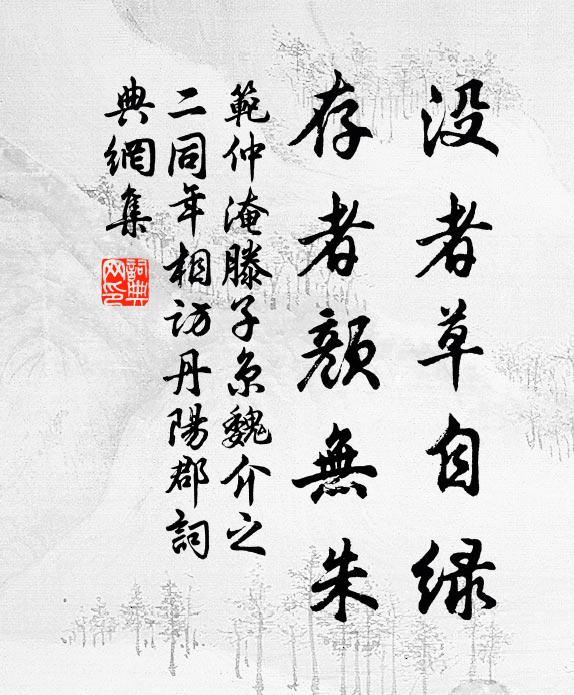 没者草自绿
存者颜無朱
範仲淹滕子京魏介之
二同年相訪丹陽郡詞
典網集
詞典
网印